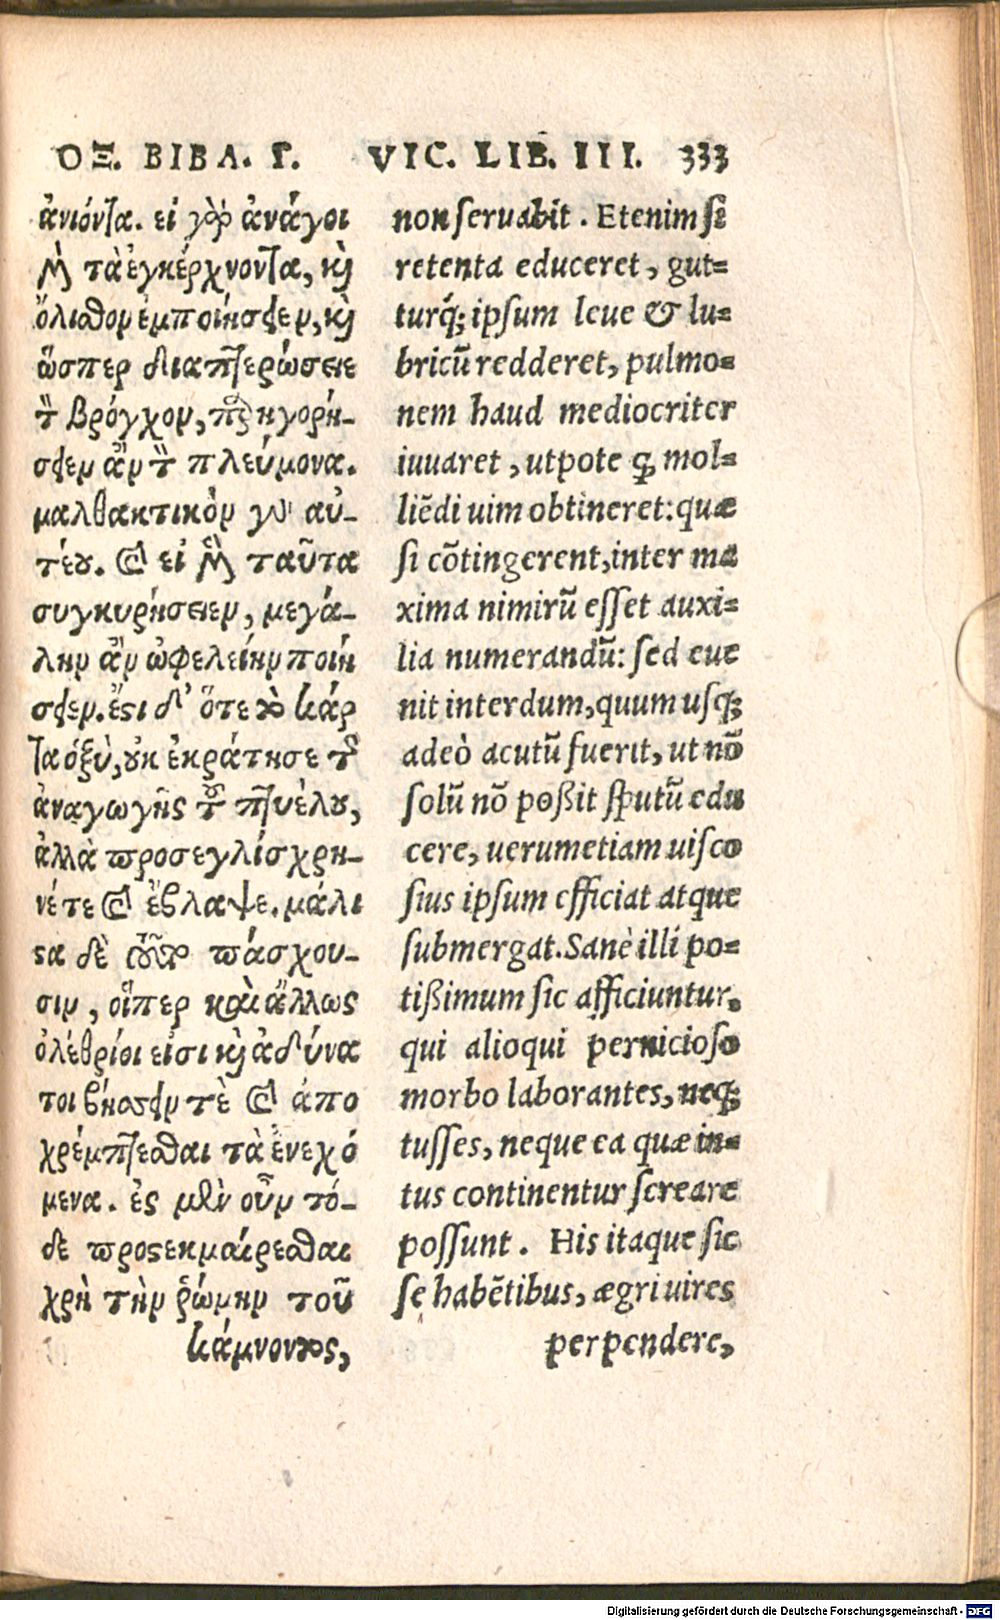 ΟΞ. ΒΙΒΛ. Γ. VIC. LIB. III. 333
ἀνιόντα. εἰ γὰρ ἀνάγοι
μὲν τὰ ἐγκέρχνοντα, καὶ
ὄλισθον ἐμποιήσειεν, καὶ
ὥσπερ διαπτερώσειε
τὸν βρόγχον, παρηγορή-
σειεν ἂν τὸν πλεύμονα.
μαλθακτικὸν γὰρ αὐ-
τέου. καὶ εἰ μὲν ταῦτα
συγκυρήσειεν, μεγά-
λην ἂν ὠφελείην ποιή
σειεν. ἔστι δ' ὅτε τὸ κάρ
τα ὀξὺ, οὐκ ἐκράτησε τῆς
ἀναγωγῆς τοῦ πτυέλου,
ἀλλὰ προσεγλίσχρη-
νέ τε καὶ ἔβλαψε. μάλι
στα δὲ οὗτοι πάσχου-
σιν, οἵπερ καὶ ἄλλως
ὀλέθριοί εἰσι καὶ ἀδύνα
τοι βήσσειν τὲ καὶ ἀπο
χρέμπτεσθαι τὰ ἐνεχό
μενα. ἐς μὲν οὖν τό-
δε προστεκμαίρεσθαι
χρὴ τὴν ῥώμην τοῦ
κάμνοντος,
non seruabit. Etenim si
retenta educeret, gut=
turq́; ipsum leue & lu=
bricũ redderet, pulmo=
nem haud mediocriter
iuuaret, utpote ꝙ mol=
liẽdi uim obtineret: quæ
si cõtingerent, inter ma
xima nimirũ esset auxi=
lia numerandũ: sed eue
nit interdum, quum usq;
adeò acutũ fuerit, ut nõ
solũ nõ poßit sputũ edu
cere, uerumetiam uisco
sius ipsum efficiat atque
submergat. Sanè illi po=
tißimum sic afficiuntur,
qui alioqui pernicioso
morbo laborantes, neq;
tusses, neque ea quæ in=
tus continentur screare
possunt. His itaque sic
se habẽtibus, ægri uires
perpendere,
Digitalisierung gefördert durch die Deutsche Forschungsgemeinschaft - DFG